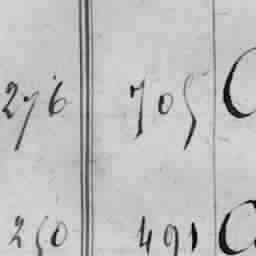 276 705 C
250 491 C